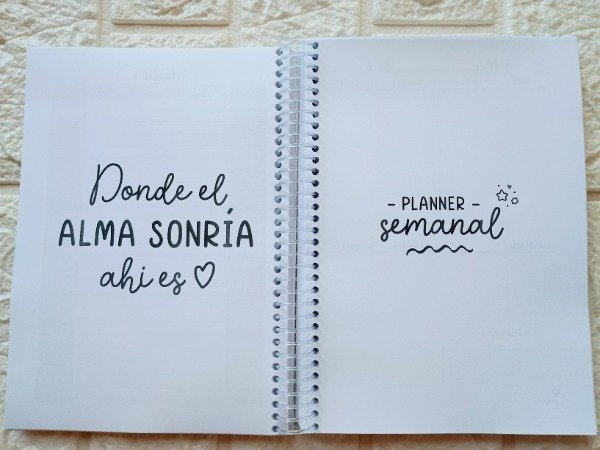 Donde el
ALMA SONRÍA
ahi es
- PLANNER -
semanal